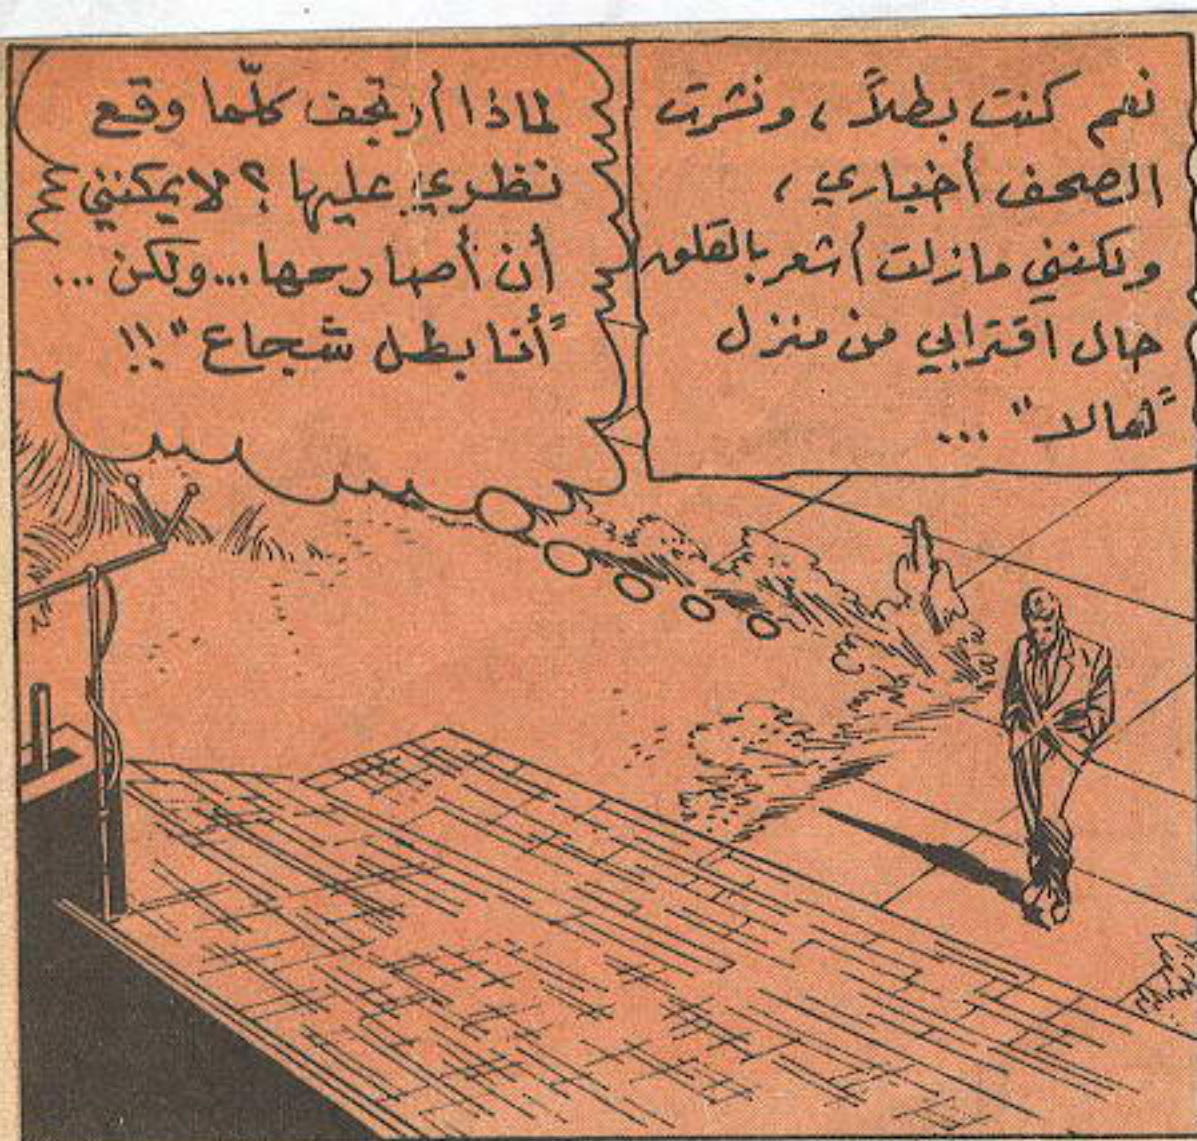 نعم كنت بطلاً ، ونشرت
الصحف أخباري ،
ولكنني مازلت أشعر بالقلق
حال اقترابي من منزل
"لهالا" ...
لماذا أرتجف كلّما وقع
نظري عليها ؟ لا يمكنني
أن أصارحها ... ولكن ...
"أنا بطل شجاع" !!